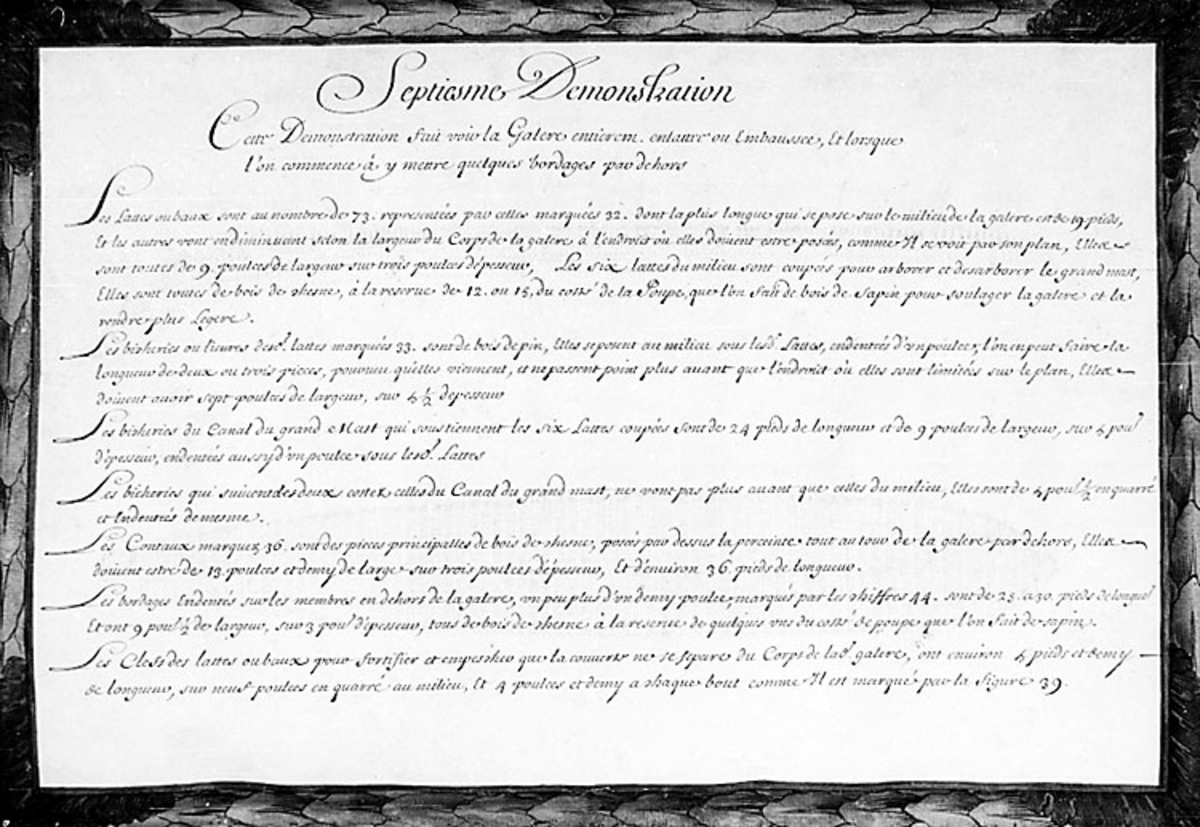 Septiesme Demonstration
Cette Demonstration fait voir la Galere entierem. enlattée ou Embaussée, Et lorsque
l'on commence à y mettre quelques bordages par dehors
Les Lattes ou baux sont au nombre de 73. representées par celles marquées 32. dont la plus longue qui se pose sur le milieu de la galere est de 19 pieds,
Et les autres vont en diminuant selon la largeur du Corps de la galere à l'endroit où elles doivent estre posées, comme Il se voit par son plan, Elles
sont toutes de 9. poulces de largeur sur trois poulces dépesseur, Les six lattes du milieu sont coupées pour arborer et desarborer le grand mast,
Elles sont toutes de bois de chesne, à la reserve de 12. ou 15, du costé de la Poupe, que l'on fait de bois de sapin pour soulager la galere et la
rendre plus Legere.
Les bicheries ou liures desd. lattes marquées 33. sont de bois de pin, Elles se posent au milieu sous lesd. Lattes, endentées d'un poulce, l'on en peut faire la
longueur de deux ou trois pieces, pourveu qu'elles viennent, et ne passent point plus avant que l'endroict où elles sont limitées sur le plan, Elles
doivent avoir sept poulces de largeur, sur 4 ½ depesseur
Les bicheries du Canal du grand Mast qui soustiennent les six Lattes coupées sont de 24 pieds de longueur et de 9 poulces de largeur, sur 4 poul.
d'epesseur, endentées aussy d'un poulce sous lesd. Lattes
Les bicheries qui suivent des deux costez celles du Canal du grand mast, ne vont pas plus avant que celles du milieu, Elles sont de 4 poul. ½ en quarré
et Endentées de mesme.
Les Contaux marquez 36. sont des pieces principalles de bois de chesne, posées par dessus la perceinte tout au tour de la galere par dehors, Elles
doivent estre de 13. poulces et demy de large sur trois poulces dépesseur, Et d'environ 36. pieds de longueur.
Les bordages Endentés sur les membres en dehors de la galere, un peu plus d'un demy poulce, marqués par les chiffres 44. sont de 25. a 30. pieds de longue.
Et ont 9 poul. ½ de largeur, sur 3 poul. d'épesseur, tous de bois de chesne à la reserve de quelques uns du costé de poupe que l'on fait de sapin.
Les Clefs des lattes ou baux pour fortifier et empescher que la couverte ne se separe du Corps de lad. galere, ont environ 4 pieds et demy
de longueur, sur neuf poulces en quarré au milieu, Et 4 poulces et demy a chaque bout comme Il est marqué par la figure 39.